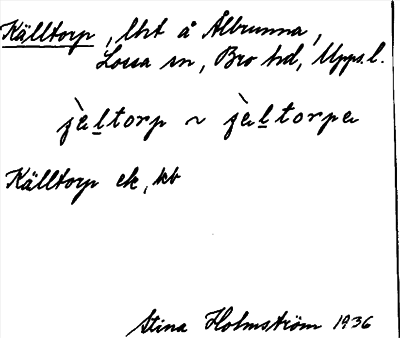 Källtorp, lht å Ålbrunna,
Lossa sn, Bro hd, Upps.l.
jàltorp ~ jàltorpa
Källtorp ek, kb
Stina Holmström 1936